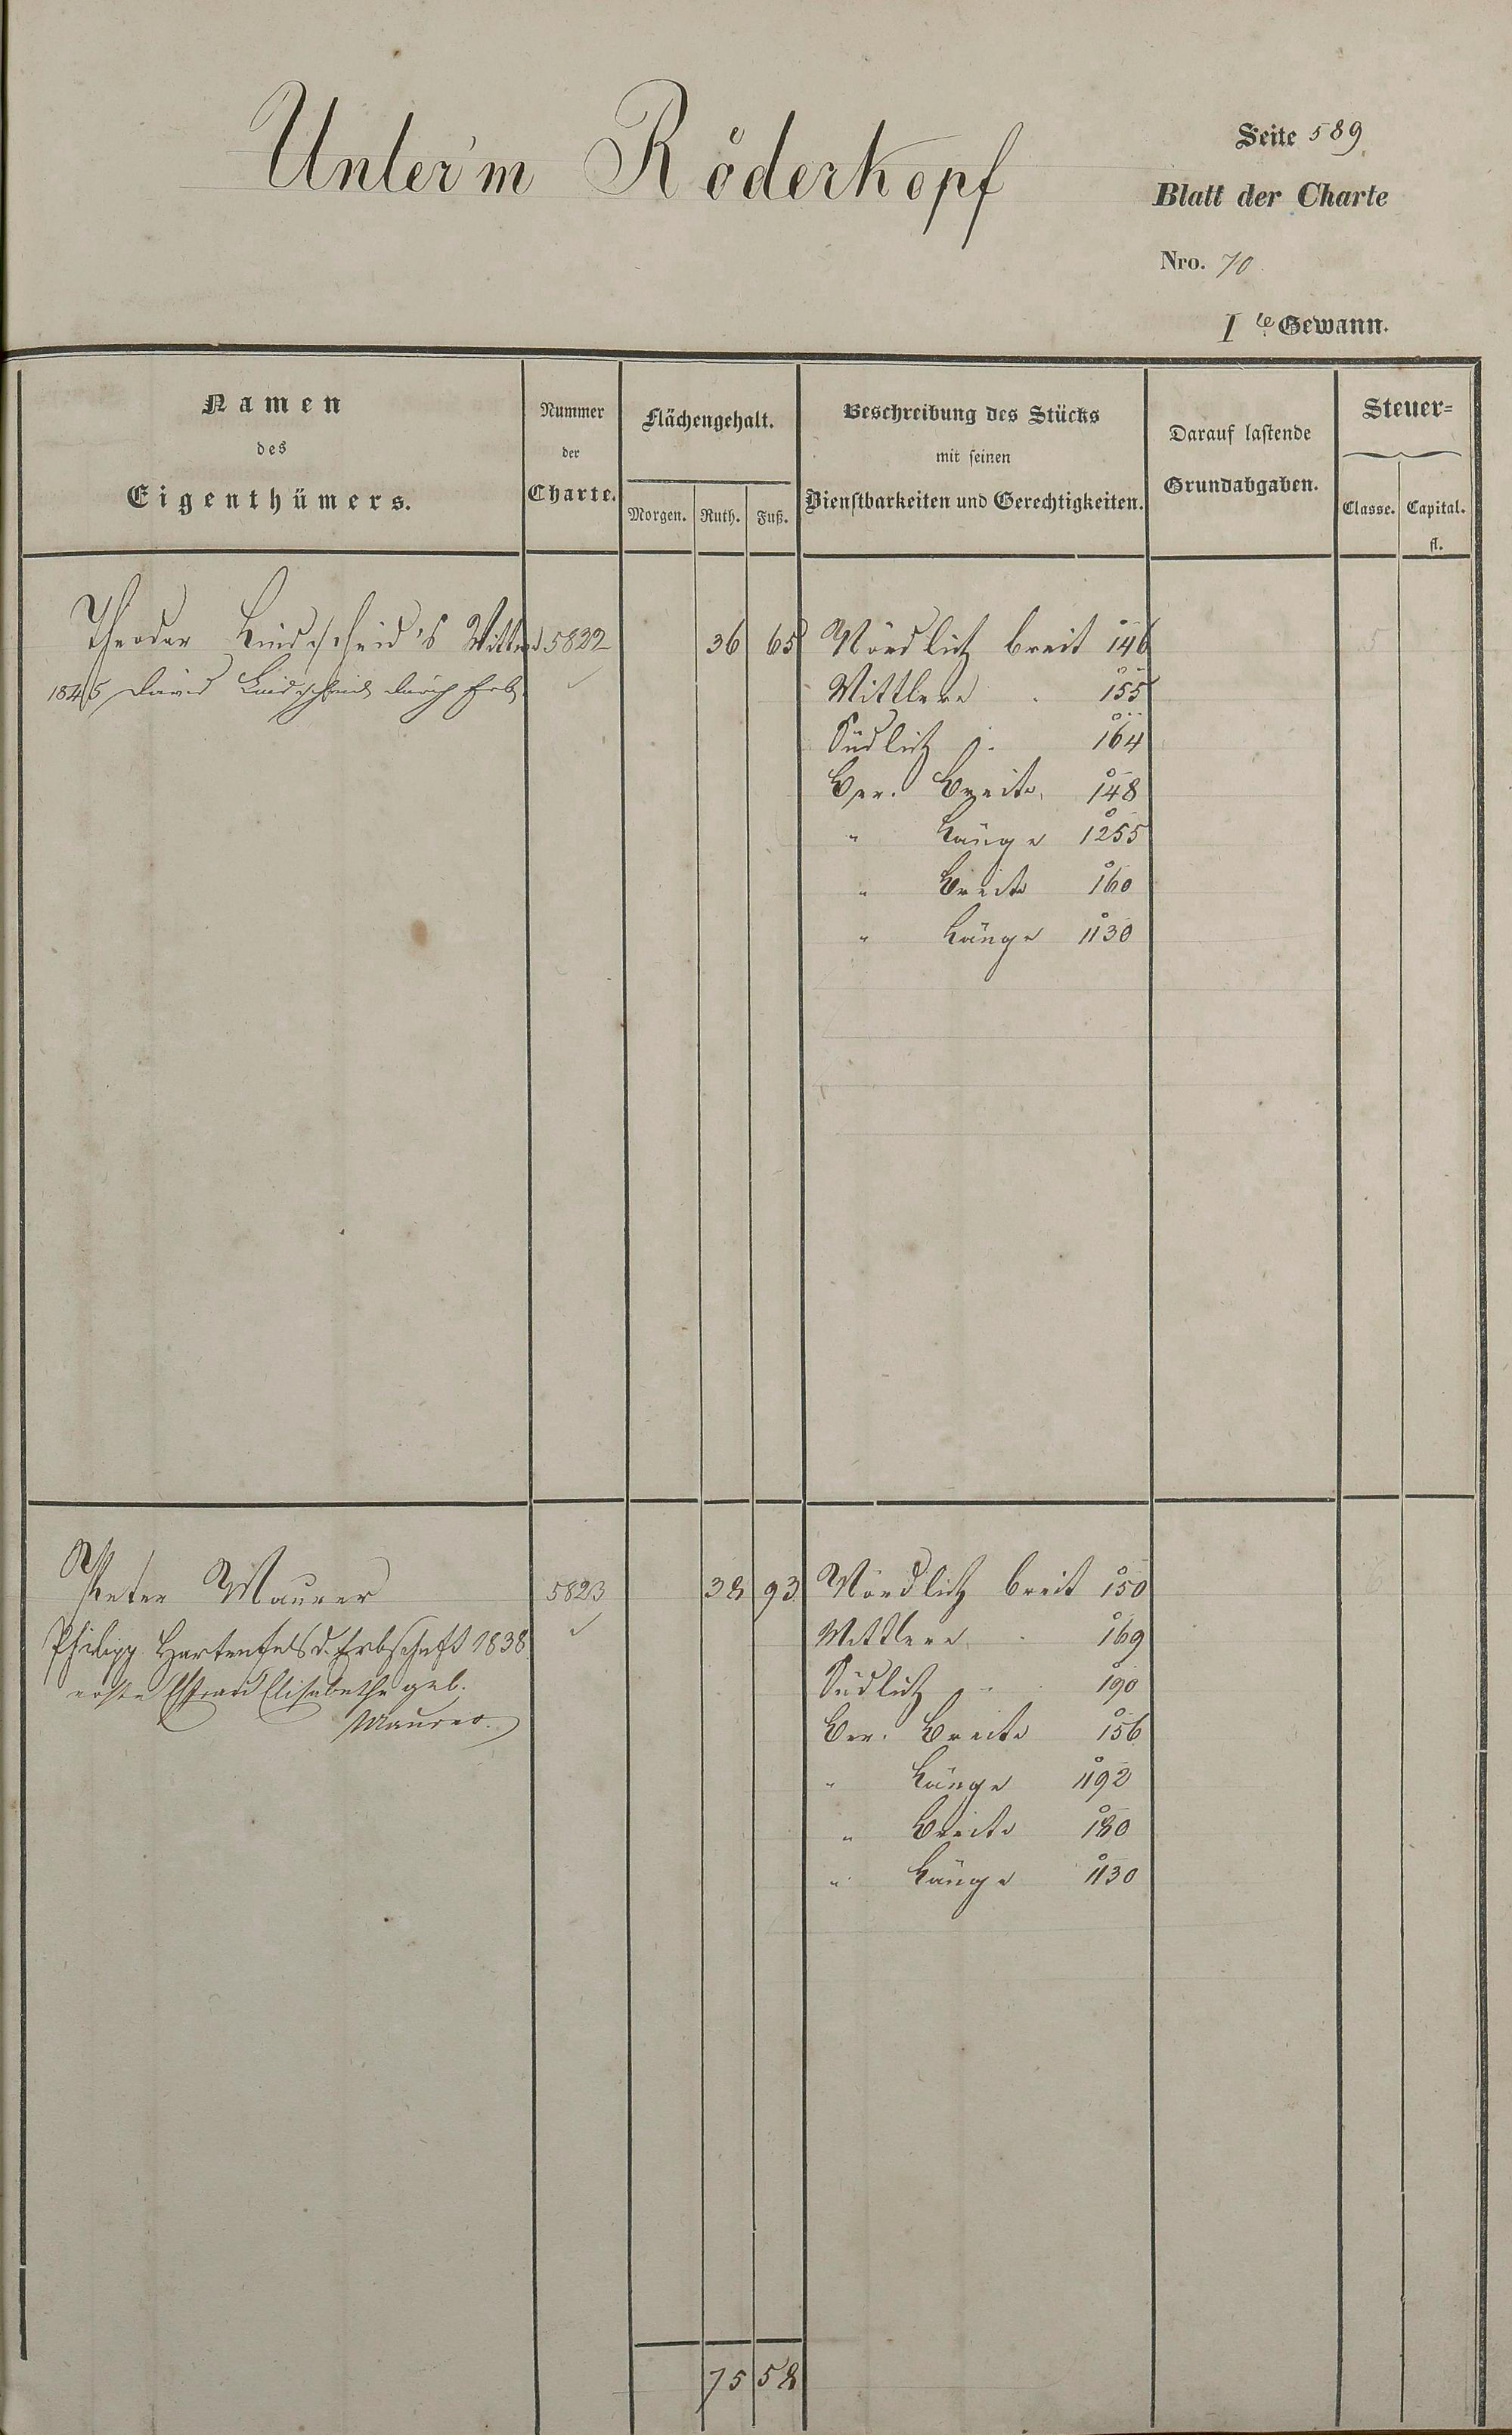 Unter'm Röderkopf
Seite 589
Blatt der Charte
Nro. 70
I te Gewann.
Namen
des
Eigenthümers.
Nummer
der
Charte.
Flächengehalt.
Morgen. Ruth. Fuß.
Beschreibung des Stücks
mit seinen
Dienstbarkeiten und Gerechtigkeiten.
Darauf lastende
Grundabgaben.
Steuer=
Classe. Capital.
fl.
Theodor Lindscheid's Wittwe 5822 36 65 Nördlich breit 146 5
1845 David Lindscheid durch Erb. Mittlere 155
Südlich 164
Ber. Breite 148
" Länge 1255
" Breite 160
" Länge 1130
Peter Maurer 5823 38 93 Nördlich breit 150
Philipp Hartenfels d. Erbschaft 1838 Mittlere 169
erste Ehfrau Elisabethe geb. Südlich 190
Maurer. Ber. Breite 156
" Länge 1192
" Breite 180
" Länge 1130
75 58